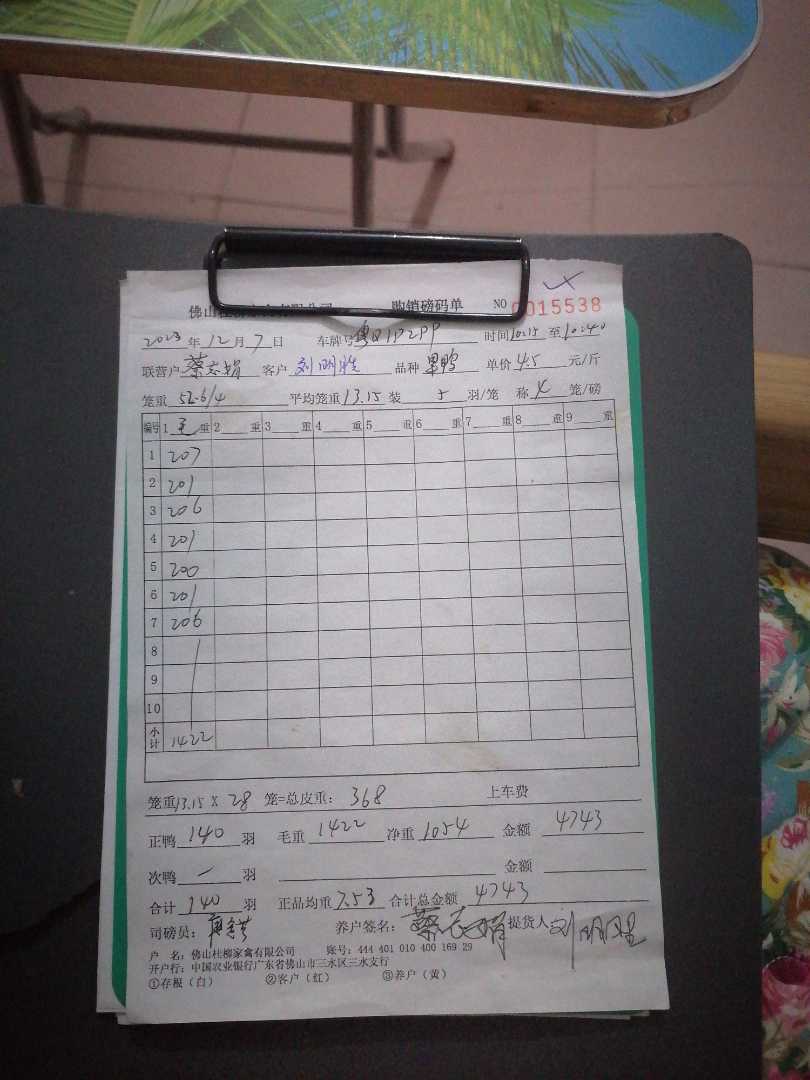 佛山 购销磅码单 NO 0015538
2023 年 12 月 7 日 车牌号 时间 10:15 至 10:40
联营户 蔡志娟 客户 刘明胜 品种 单价 4.5 元/斤
笼重 52.6/4 平均笼重 13.15 装 5 羽/笼 称 4 笼/磅
编号 1 重 2 重 3 重 4 重 5 重 6 重 7 重 8 重 9 重
1 207
2 201
3 206
4 201
5 200
6 201
7 206
8
9
10
小计 1422
笼重 13.15 X 28 笼=总皮重: 368 上车费
正鸭 140 羽 毛重 1422 净重 1054 金额 4743
次鸭 羽 金额
合计 140 羽 正品均重 7.53 合计总金额 4743
司磅员: 养户签名: 蔡志娟 提货人 刘明胜
户 名: 佛山杜柳家禽有限公司 账号: 444 401 010 400 169 29
开户行: 中国农业银行广东省佛山市三水区三水支行
①存根（白） ②客户（红） ③养户（黄）